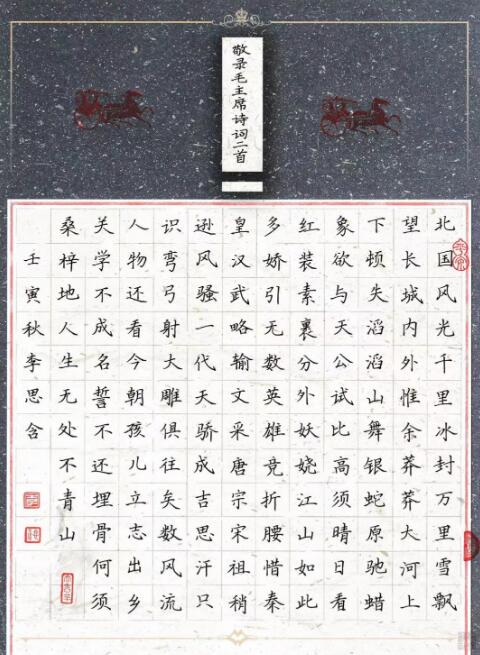 敬录毛主席诗词二首
北国风光千里冰封万里雪飘
望长城内外惟余莽莽大河上
下顿失滔滔山舞银蛇原驰蜡
象欲与天公试比高须晴日看
红装素裹分外妖娆江山如此
多娇引无数英雄竞折腰惜秦
皇汉武略输文采唐宗宋祖稍
逊风骚一代天骄成吉思汗只
识弯弓射大雕俱往矣数风流
人物还看今朝孩儿立志出乡
关学不成名誓不还埋骨何须
桑梓地人生无处不青山
壬寅秋李思含